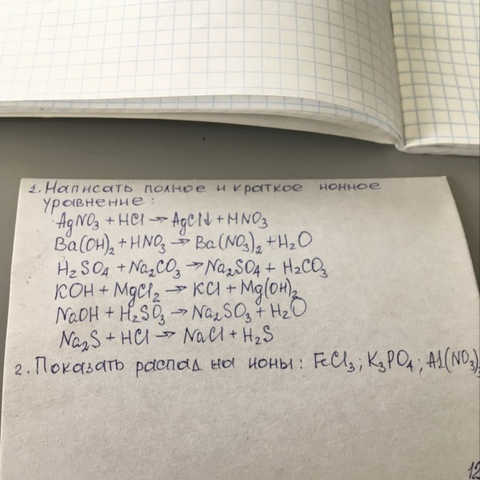 1. Написать полное и краткое ионное
уравнение:
AgNO₃ + HCl → AgCl↓ + HNO₃
Ba(OH)₂ + HNO₃ → Ba(NO₃)₂ + H₂O
H₂SO₄ + Na₂CO₃ → Na₂SO₄ + H₂CO₃
KOH + MgCl₂ → KCl + Mg(OH)₂
NaOH + H₂SO₃ → Na₂SO₃ + H₂O
Na₂S + HCl → NaCl + H₂S
2. Показать распад на ионы: FeCl₃; K₃PO₄; Al(NO₃)₃
12